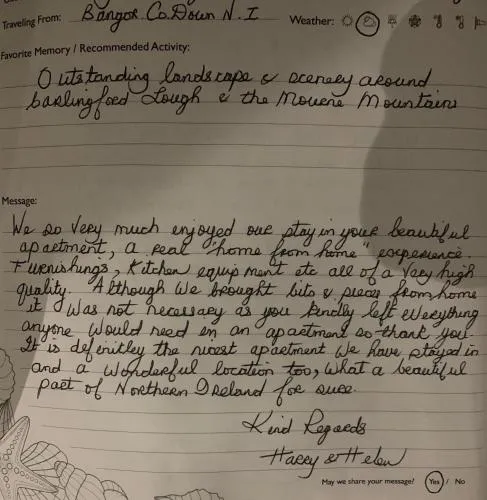 Traveling From: Bangor Co. Down N. I
Weather:
Favorite Memory / Recommended Activity:
Outstanding landscape & scenery around
Carlingford Lough & the Mourne Mountains
Message:
We so very much enjoyed our stay in your beautiful
apartment, a real "home from home" experience.
Furnishings, Kitchen equipment etc all of a very high
quality. Although we brought bits & pieces from home
it was not necessary as you kindly left everything
anyone would need in an apartment so thank you.
It is definitley the nicest apartment we have stayed in
and a wonderful location too, what a beautiful
part of Northern Ireland for sure.
Kind Regards
Harry & Helen
May we share your message? Yes / No